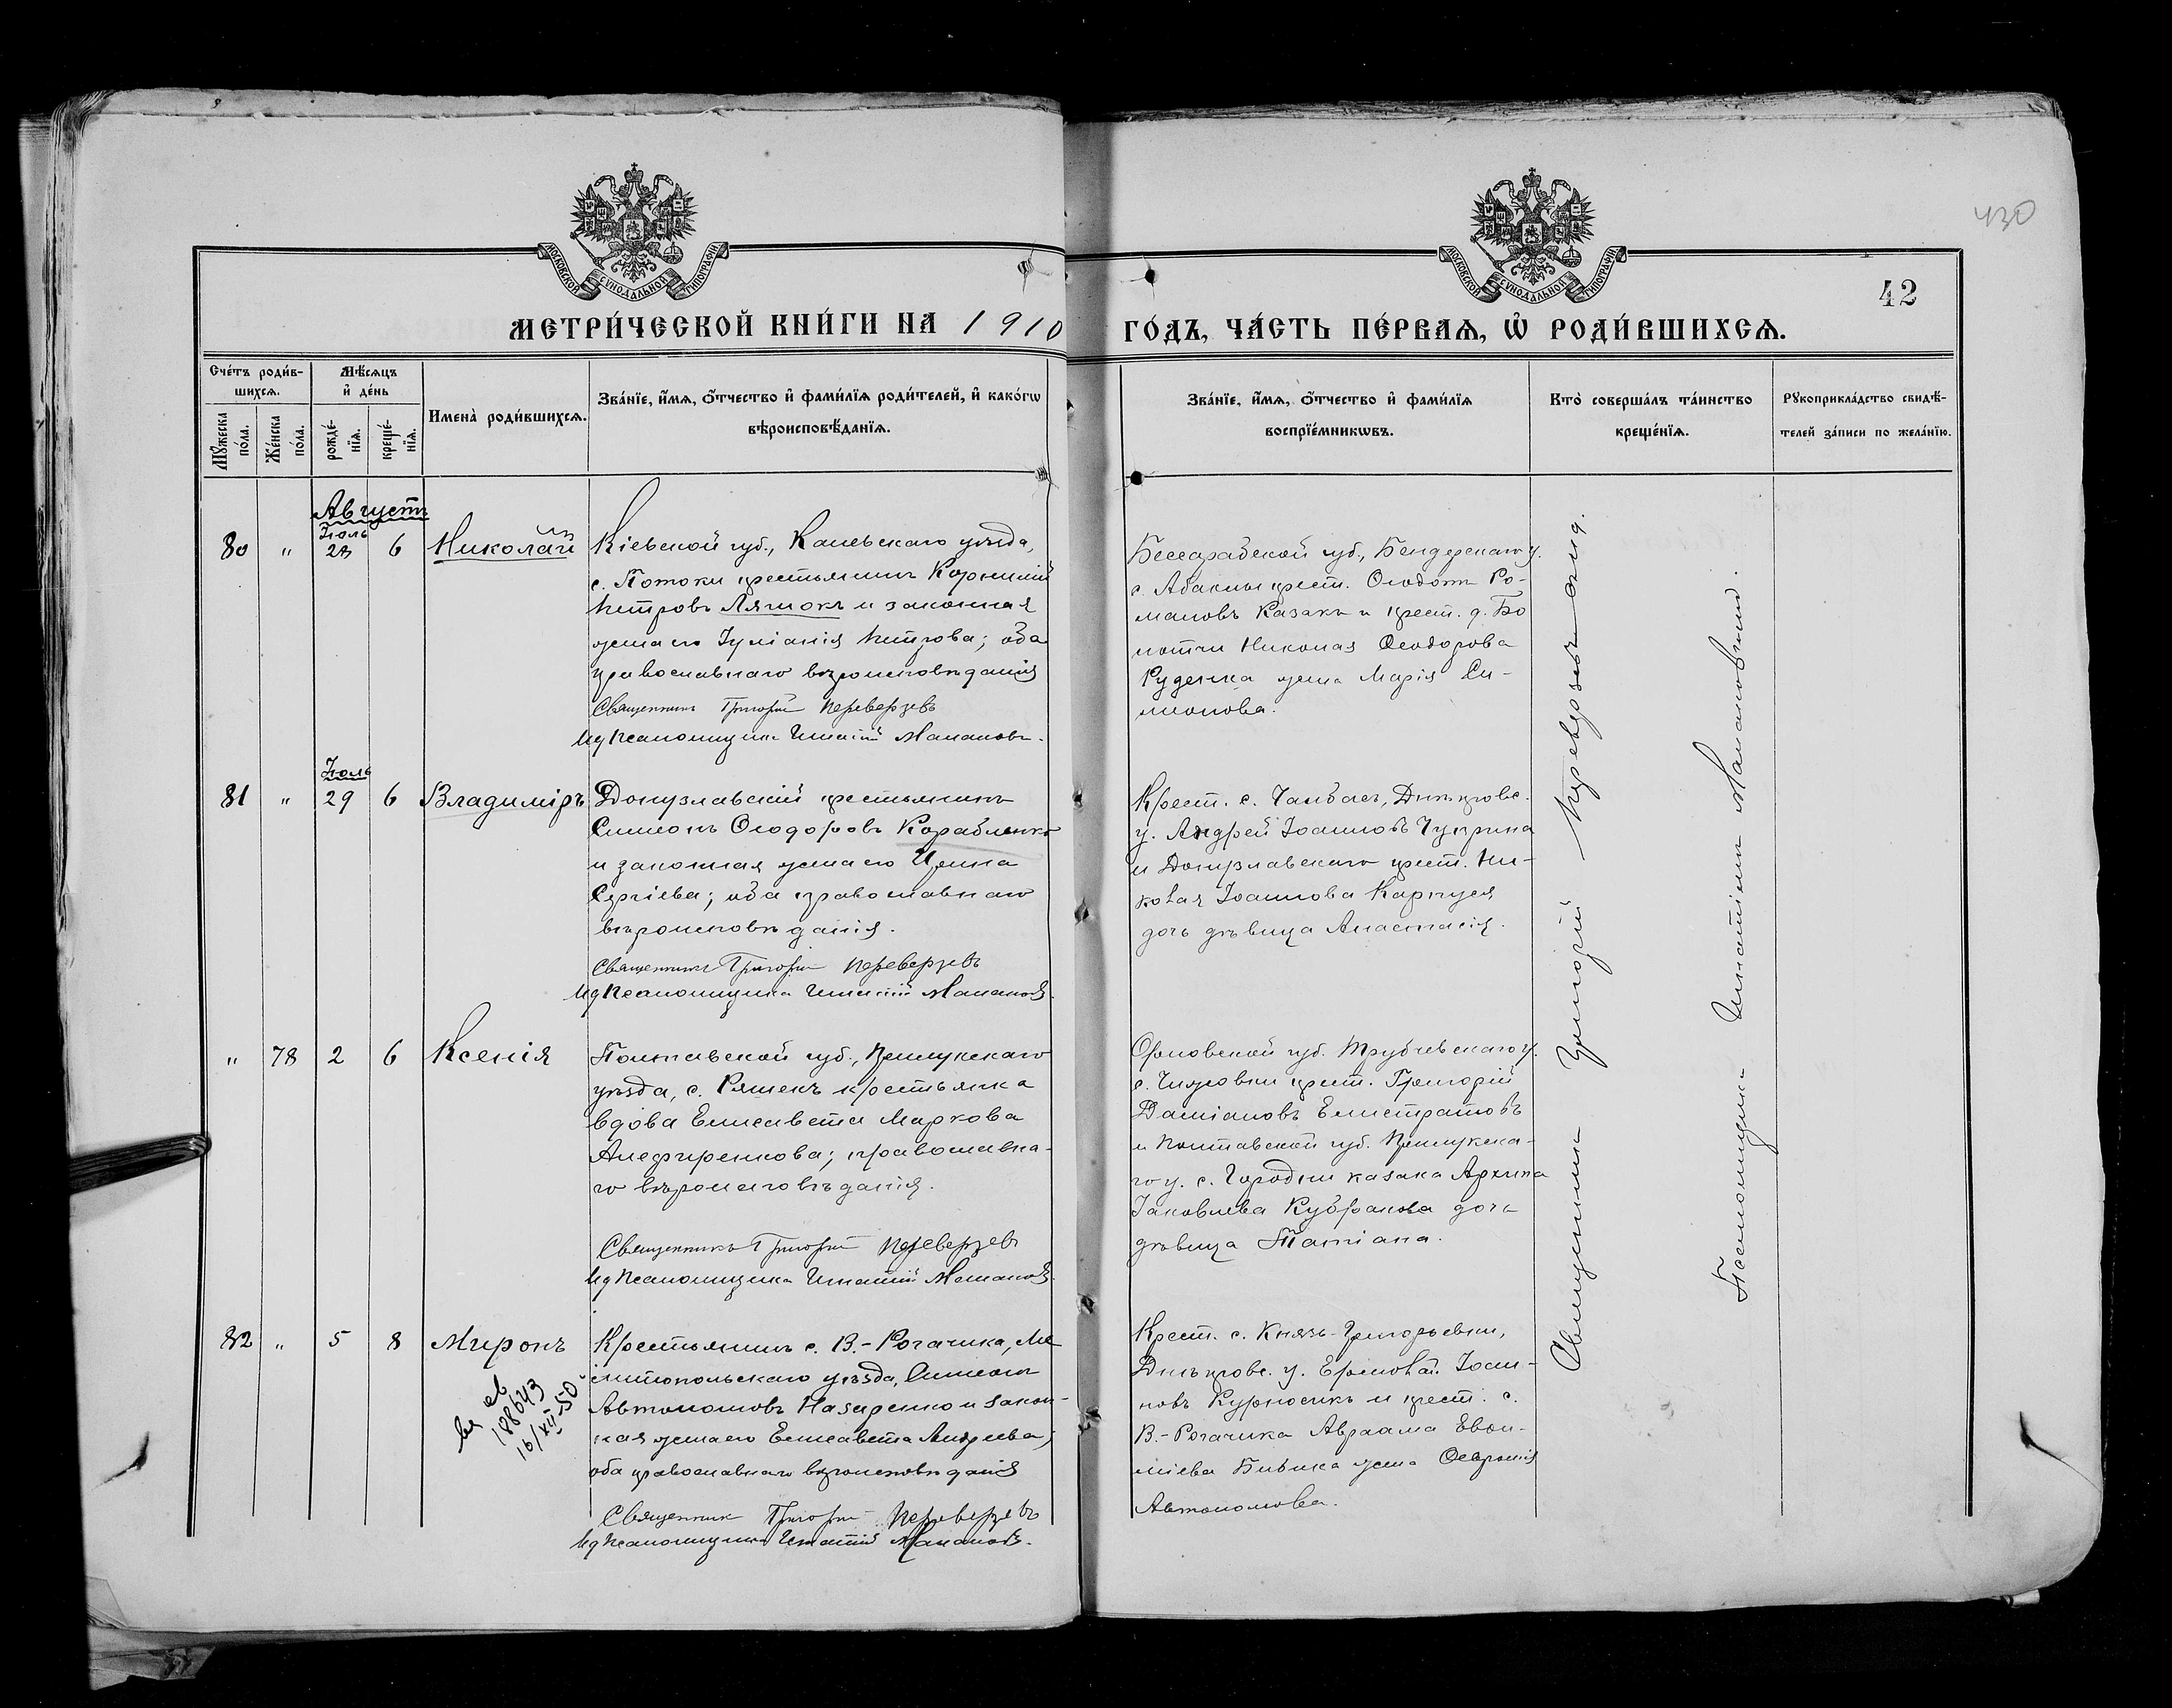 430
42
МОСКОВСКОЙ СѴНОДАЛЬНОЙ ТИПОГРАФІИ
МОСКОВСКОЙ СѴНОДАЛЬНОЙ ТИПОГРАФІИ
МЕТРИ́ЧЕСКОЙ КНИ́ГИ НА 1910 ГО́ДЪ, ЧА́СТЬ ПЕ́РВАѦ, Ѽ РОДИ́ВШИХСѦ.
Сче́тъ роди́в-
шихсѧ.
Мꙋжеска по́ла.
Же́нска по́ла.
Мѣ́сѧцъ
и҆ де́нь
рожде́-
нїѧ.
креще́-
нїѧ.
Имена̀ роди́вшихсѧ.
Зва́нїе, и҆́мѧ, ѻ҆́тчество и҆ фами́лїѧ роди́телей, и҆ како́гѡ
вѣроисповѣ́данїѧ.
Зва́нїе, и҆́мѧ, ѻ҆́тчество и҆ фами́лїѧ
воспрїе́мникѡвъ.
Кто̀ соверша́лъ та́инство
креще́нїѧ.
Рꙋкоприкла́дство свидѣ́-
телей за́писи по жела́нїю.
Августъ
Іюль
80 " 28 6 Николай
Кіевской губ., Каневскаго уѣзда,
с. Потоки крестьянинъ Корнилій
Петровъ Ляшокъ и законная
жена его Іуліанія Петрова; оба
православнаго вѣроисповѣданія
Священникъ Григорій Переверзевъ
Ид Псаломщика Игнатій Манановъ.
Бессарабской губ., Бендерскаго у.
с. Абаклы крест. Ѳеодотъ Ро-
мановъ Казакъ и крест. д. Бо
Николая Ѳеодорова
Руденка жена Марія Си-
меонова.
Іюль
81 " 29 6 Владиміръ
Донузлавскій крестьянинъ
Симеонъ Ѳеодоровъ Корабленко
и законная жена его Ирина
Сергіева; оба православнаго
вѣроисповѣданія.
Священникъ Григорій Переверзевъ
Ид Псаломщика Игнатій Манановъ.
Крест. с. Чалбасъ, Днѣпровс.
у. Андрей Іоанновъ Чуприна
и Донузлавскаго крест. Ни-
колая Іоаннова Карпуся
дочь дѣвица Анастасія.
" 78 2 6 Ксенія
Полтавской губ., Прилукскаго
уѣзда, с. Ряшекъ крестьянка
вдова Елисавета Маркова
Алефиренкова; православна-
го вѣроисповѣданія.
Священникъ Григорій Переверзевъ
Ид Псаломщика Игнатій Манановъ.
Орловской губ. Трубчевскаго у.
с. крест. Григорій
Даміановъ Елистратовъ
и Полтавской губ. Прилукска-
го у. с. Городни казака Архипа
Іаковлева Кубракова дочь
дѣвица Татіана.
82 " 5 8 Миронъ
188643
16/XII-50
Крестьянинъ с. В.-Рогачика, Ме
литопольскаго уѣзда, Симеонъ
Автономовъ Назаренко и закон-
ная жена его Елисавета Андреева;
оба православнаго вѣроисповѣданія
Священникъ Григорій Переверзевъ
Ид Псаломщика Игнатій Манановъ.
Крест. с. Князь-Григорьевки,
Днѣпровс. у. Ермолай Іоан-
новъ Курносикъ и крест. с.
В.-Рогачика Авраама Евѳи-
міева Бивика жена Ѳевронія
Автономова.
Священникъ Григорій Переверзевъ
Псаломщикъ Игнатій Манановскій.